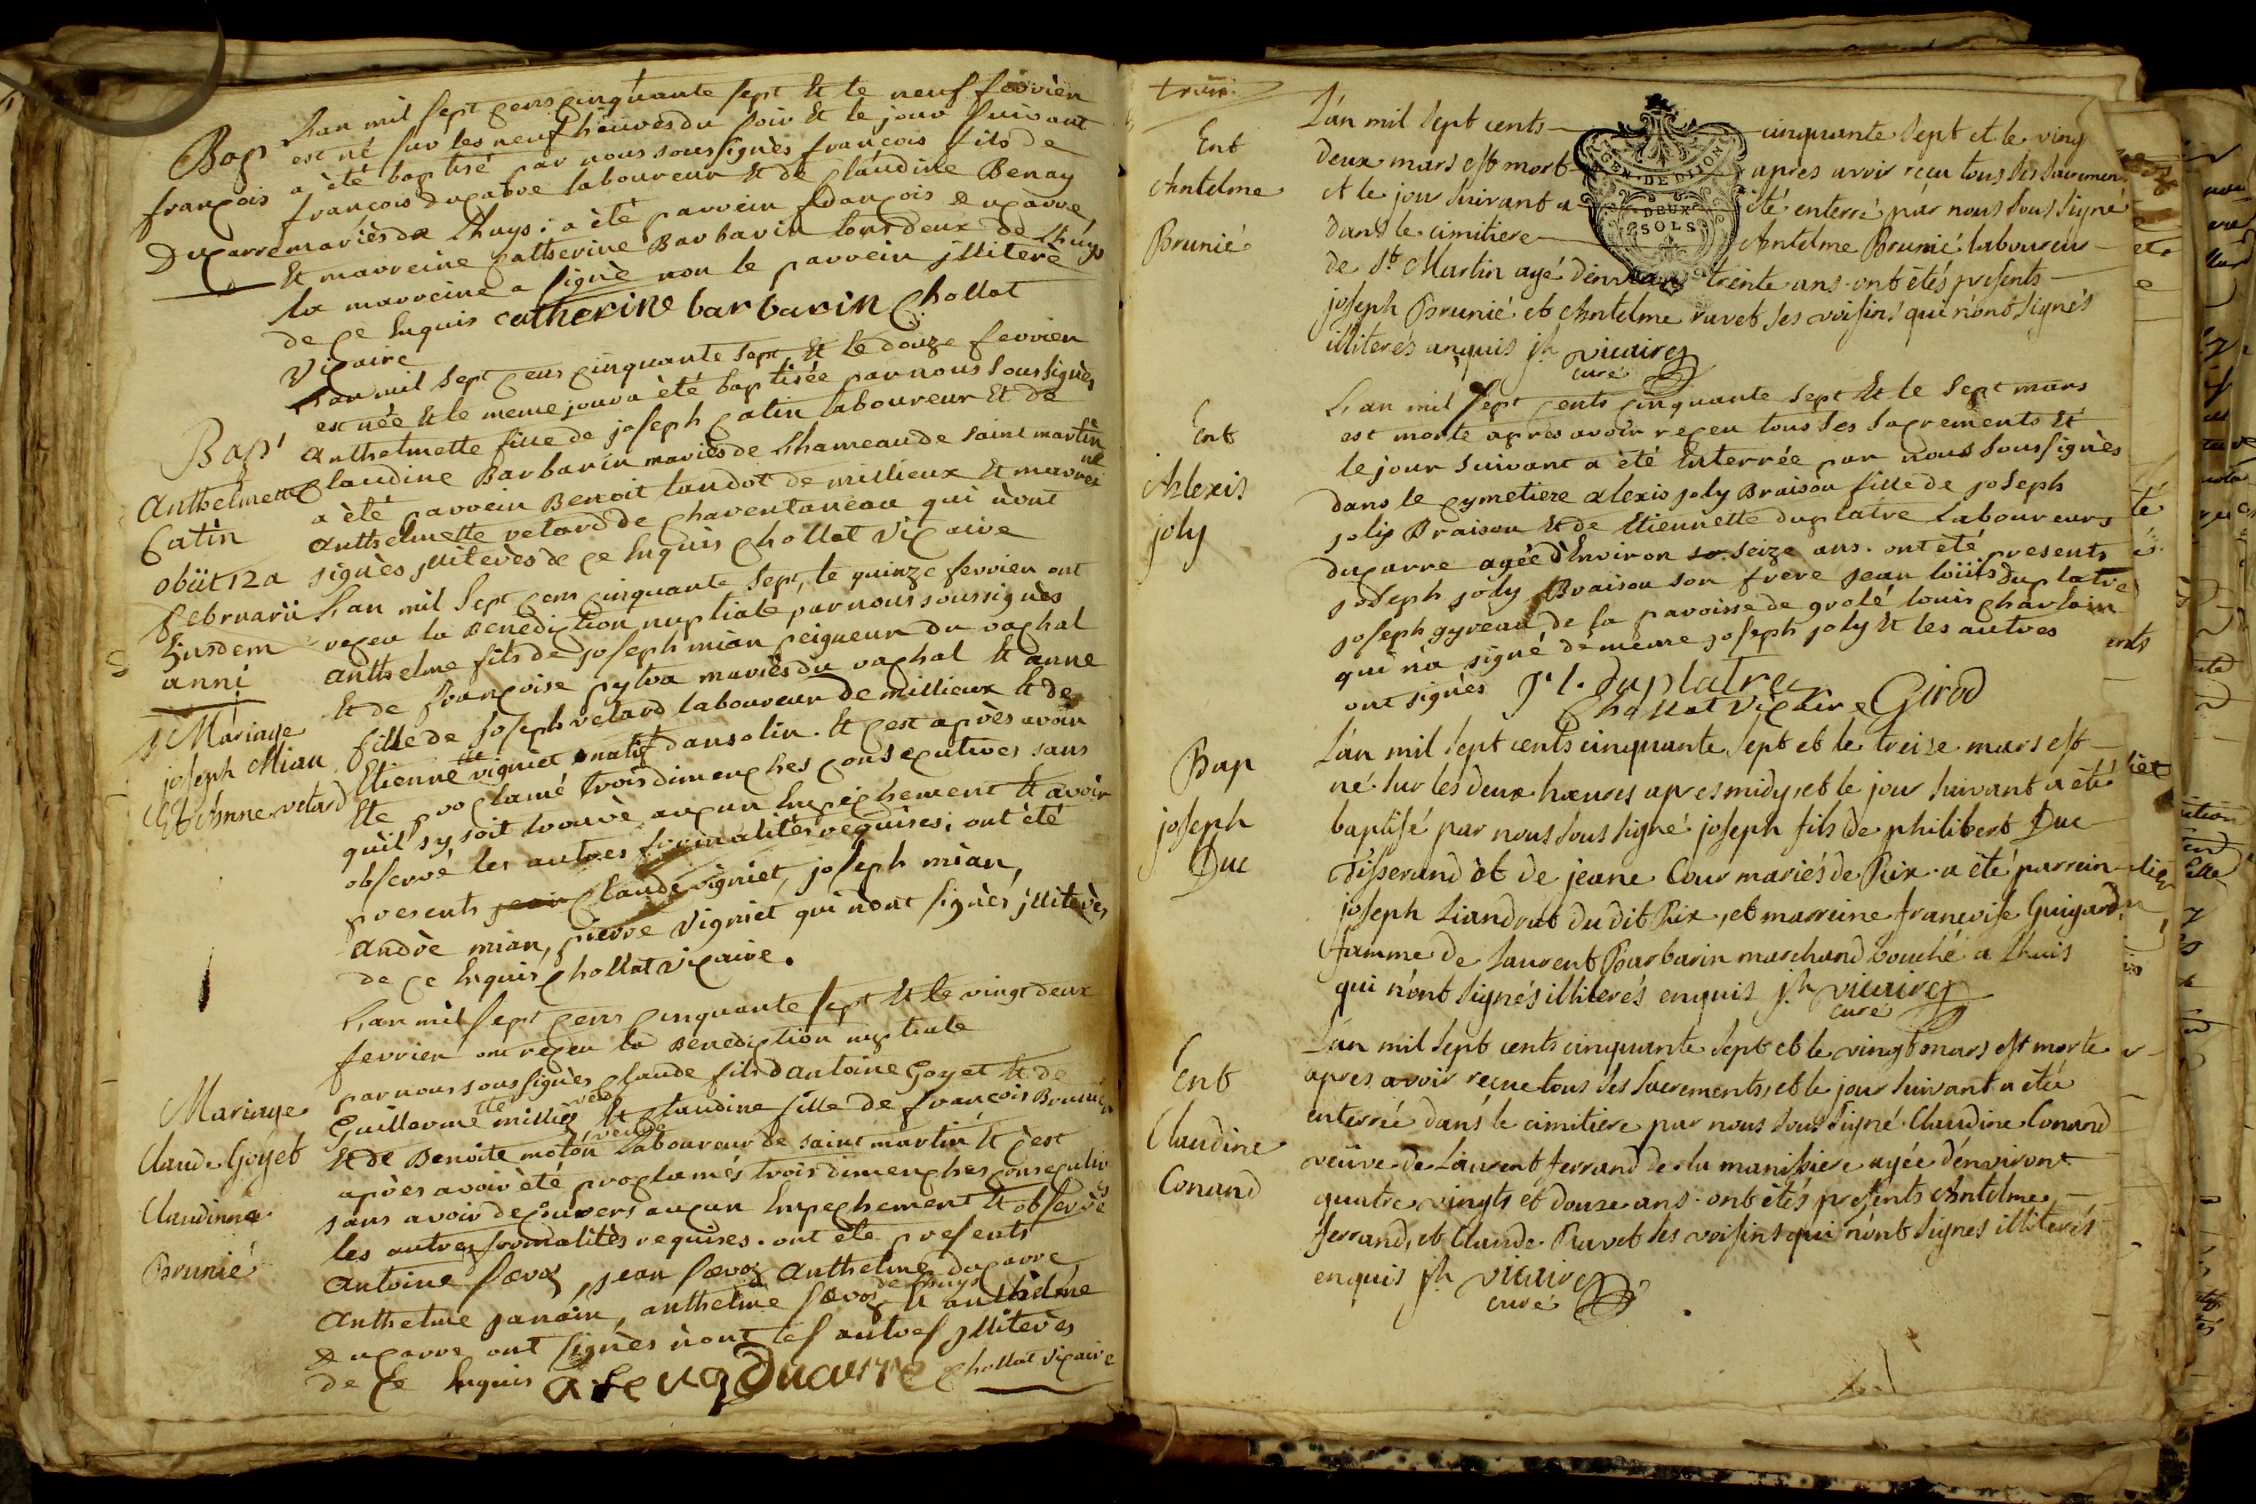 Bap
françois
Ducarre
L'an mil sept cens cinquante sept Et le neuf fevrier
est né sur les neuf heures du soir Et le jour suivant
a été baptisé par nous soussignès françois fils de
françois ducarre laboureur Et de Claudine Benay
mariès de Lhuys; a èté parrein françois Ducarre,
Et marreine Catherine Barbarin tous deux de Lhuys
la marreine a signè non le parrein jlliterè
de ce Enquis catherine barbarin Chollat
Vicaire
Bap
Anthelmette
Catin
obiit 12a
februarii
Ejusdem
anni
L'an mil sept cens cinquante sept, Et le douze fevrier
est nèe Et le meme jour a èté baptisèe par nous soussignès
anthelmette fille de joseph Catin laboureur Et de
Claudine Barbarin mariès de Lhameau de saint martin
a èté parrein Benoit landot de millieux Et marrei
ne
anthelmette velard de Charentaneau qui n'ont
signès jlliterès de ce Enquis Chollat Vicaire
Mariage
joseph Mian
Et Anne velard
L'an mil sept cens cinquante sept, le quinze fevrier ont
reçeu la Benediction nuptiale par nous soussignès
anthelme fils de joseph mian peigneur du vachal
Et de françoise pytra mariès du vachal Et anne
fille de joseph velard laboureur de millieux Et de
Etienne tte vigniet natif dansolin. Et c'est après avoir
Ete proclamé trois dimenches consecutives sans
qu'il s'y soit trouvè aucun Empéchement Et avoir
observé les autres formalitès requises; ont été
presents jean Claude vigniet, joseph mian,
andrè mian, pierre Vigniet qui n'ont signès jlliterès
de ce Enquis Chollat vicaire.
Mariage
Claude Goyet
Claudinne
Brunié
L'an mil sept cens cinquante sept Et le vingt deux
fevrier ont reçeu la Benediction nuptiale
par nous sous signès Claude fils d'antoine Goyet Et de
Guillerme millies Et Claudine fille de françois Brunié
Et de Benoite moton veuve laboureur de saint martin Et c'est
après avoir èté proclamés trois dimenches consecutiv
es
sans avoir decouvers aucun Empechement Et observè
les autres formalitès requises. ont été presents
antoine sevoz, jean sevoz anthelme ducarre
de Lhuys
Anthelme janain, anthelme sevoz Et anthelme
Ducarre ont signès n'ont les autres jlliterès
de ce Enquis a sevoz Ducarre Chollat vicaire
trois
Ent
Antelme
Brunié
L'án mil sept cents cinquante sept et le ving
deux mars est mort après avoir reçu tous ses sacremen
et le jour suivant a été enterré par nous sous signé
dans le cimitiere Antelme Brunié laboureur
de St. Martin agé d'environ trente ans. ont étés presents
joseph Brunié et Antelme ravet ses voisins qui n'ont signés
illiterés anquis jh vicaire
curé
GEN. DE DIJON
DEUX
SOLS
Ent
Alexis
joly
L'an mil sept cents cinquante sept Et le sept mars
est morte apres avoir reçeu tous ses sacrements Et
le jour suivant a èté Enterrée par nous soussignès
dans le cymetiere alexis joly Braison fille de joseph
joly Braison Et de Etiennette duplatre laboureurs
ducarre agèe d'Environ seize ans. ont èté presents
joseph joly Braison son frere jean loüis duplatre
joseph gyreau de la paroisse de grolé louis charlain
qui n'a signé de meme joseph joly Et les autres
ont signès J l. duplatre
Chollat Vicaire Girod
Bap
joseph
Duc
L'án mil sept cents cinquante sept et le treize mars est
né sur les deux hœures apres midy, et le jour suivant a été
baptisé par nous sous signé joseph fils de philibert Duc
tisserand èt de jeane Cour mariés de Rix. a été parrein
joseph Liandrat du dit Rix, et marreine françoise Guigard
famme de laurent Barbarin marchand bouché a Lhuis
qui n'ont signés illiterés enquis jh vicaire
curé
Ent
Claudine
Conand
L'án mil sept cents cinquante sept et le vingt mars est morte
apres avoir reçue tous ses sacrements, et le jour suivant a étée
enterrée dans le cimitiere par nous sous signé Claudine Conand
veuve de laurent ferrand de la manissiere agée d'environt
quatre vingts et douze ans. ont étés presents Antelme
ferrand, et Claude Ravet ses voisins qui n'ont signes illiterés
enquis jh vicaire
curé